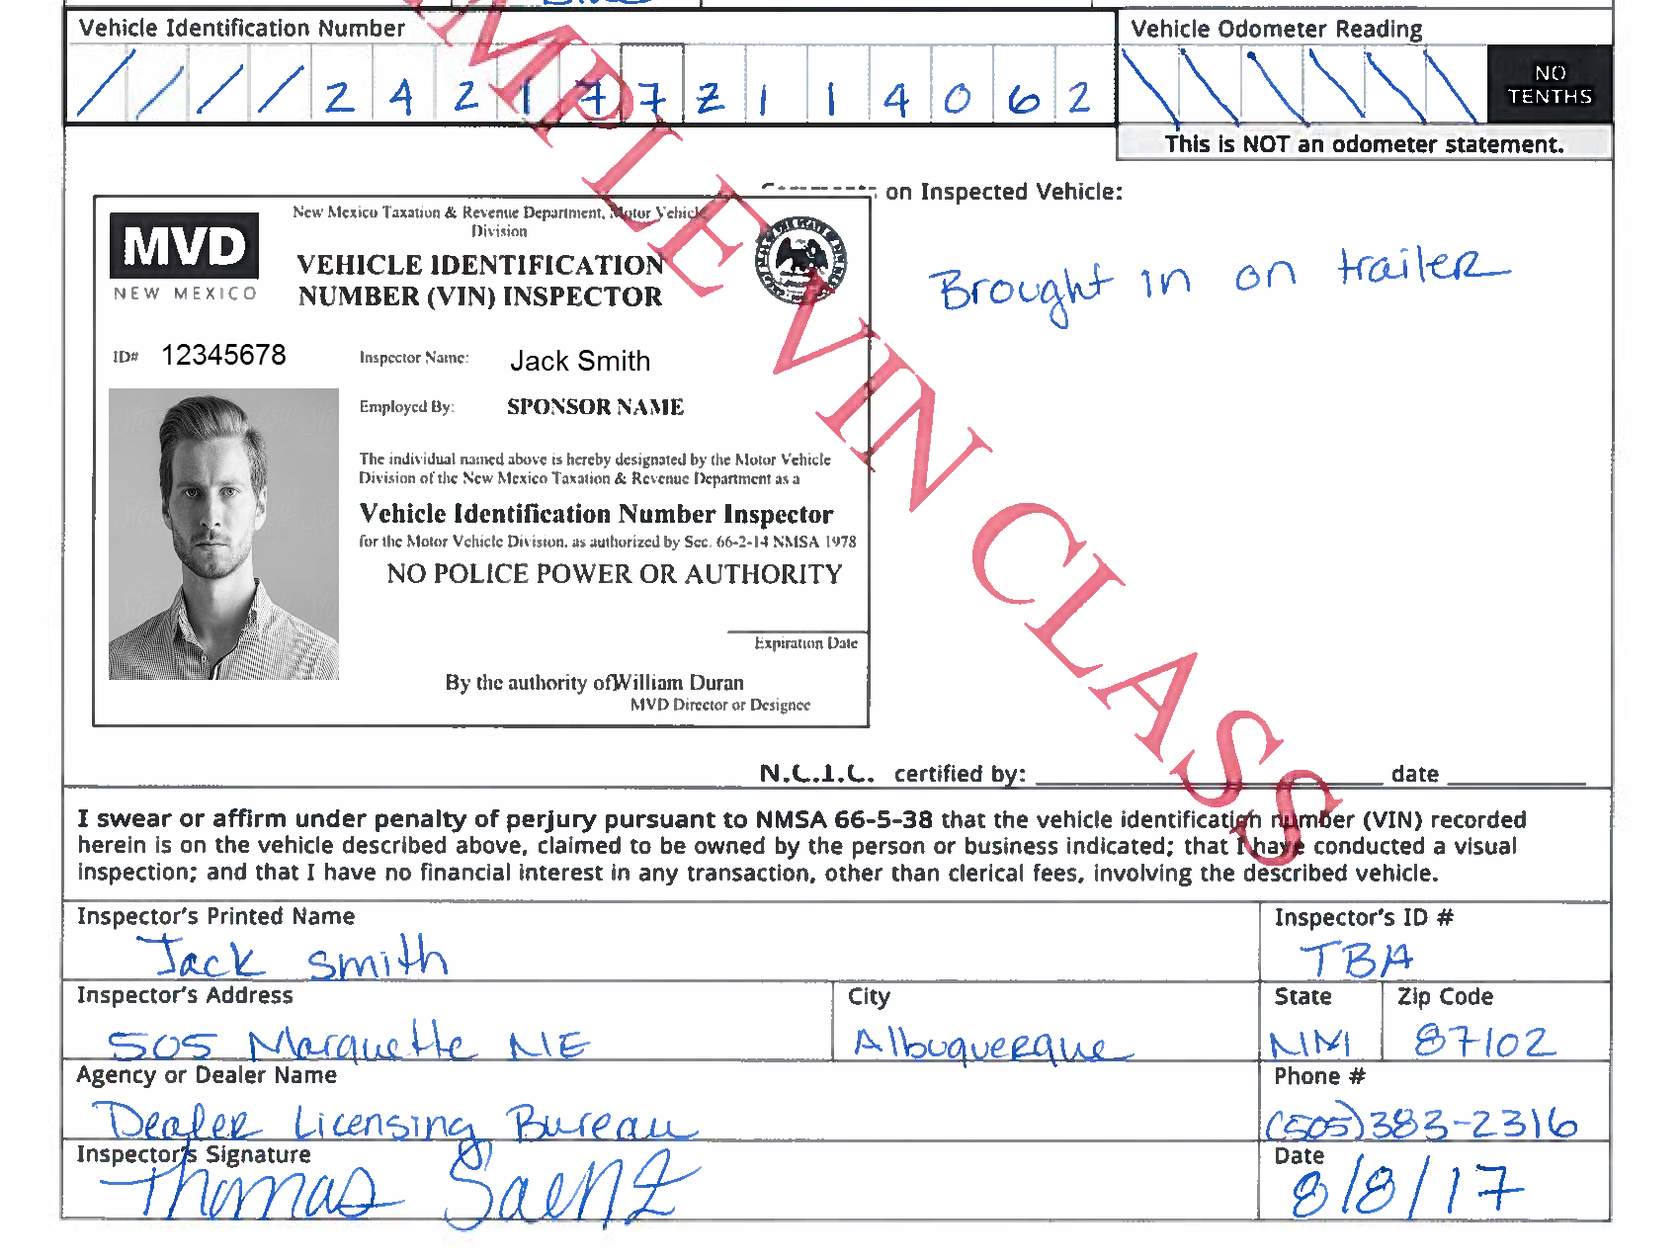 Vehicle Identification Number
Vehicle Odometer Reading
////24217772114062
\\\\\\
NO
TENTHS
This is NOT an odometer statement.
on Inspected Vehicle:
Brought in on trailer
MVD
NEW MEXICO
New Mexico Taxation & Revenue Department, Motor Vehicle
Division
VEHICLE IDENTIFICATION
NUMBER (VIN) INSPECTOR
ID# 12345678
Inspector Name: Jack Smith
Employed By: SPONSOR NAME
The individual named above is hereby designated by the Motor Vehicle
Division of the New Mexico Taxation & Revenue Department as a
Vehicle Identification Number Inspector
for the Motor Vehicle Division, as authorized by Sec. 66-2-14 NMSA 1978
NO POLICE POWER OR AUTHORITY
Expiration Date
By the authority of William Duran
MVD Director or Designee
MPLE VIN CLASS
N.C.I.C. certified by: date
I swear or affirm under penalty of perjury pursuant to NMSA 66-5-38 that the vehicle identification number (VIN) recorded
herein is on the vehicle described above, claimed to be owned by the person or business indicated; that I have conducted a visual
inspection; and that I have no financial interest in any transaction, other than clerical fees, involving the described vehicle.
Inspector's Printed Name
Jack Smith
Inspector's ID #
TBA
Inspector's Address
505 Marquette NE
City
Albuquerque
State
NM
Zip Code
87102
Agency or Dealer Name
Dealer Licensing Bureau
Phone #
(505)383-2316
Inspector's Signature
Thomas Saenz
Date
8/8/17